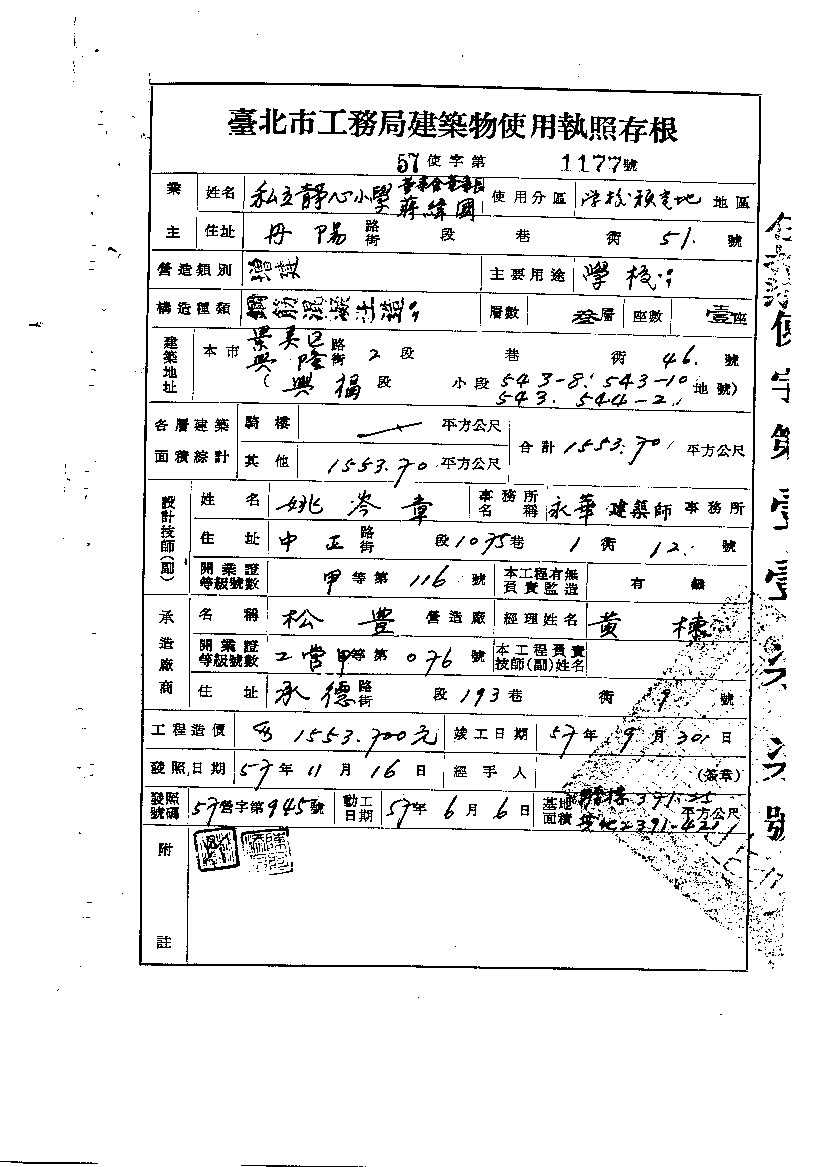 臺北市工務局建築物使用執照存根
57使字第 1177號
業主 姓名 私立靜心小學 董事會董事長 蔣緯國 使用分區 學校預定地 地區
住址 丹陽 路街 段 巷 衖 51. 號
營造類別 增建 主要用途 學校
構造種類 鋼筋混凝土造 層數 叁層 座數 壹座
建築地址 本市 景美區 興隆 路街 2段 巷 衖 46. 號
(興福 段 小段 543-8. 543-10 地號)
543. 544-2.
各層建築面積綜計 騎樓 平方公尺 合計 1553.70 平方公尺
其他 1553.70 平方公尺
設計技師(副) 姓名 姚岑章 事務所名稱 永華建築師 事務所
住址 中正 路街 段 1075巷 1衖 12. 號
開業證等級號數 甲等第 116 號 本工程有無負責監造 有
承造廠商 名稱 松豐 營造廠 經理姓名 黃棟
開業證等級號數 工營甲等第 076 號 本工程負責技師(副)姓名
住址 承德 路街 段 193巷 衖 9. 號
工程造價 1553.700元 竣工日期 57年 9月 30日
發照日期 57年 11月 16日 經手人 (簽章)
發照號碼 57營字第945號 動工日期 57年 6月 6日 基地面積 391.25 平方公尺
附註
使字第壹壹柒柒號